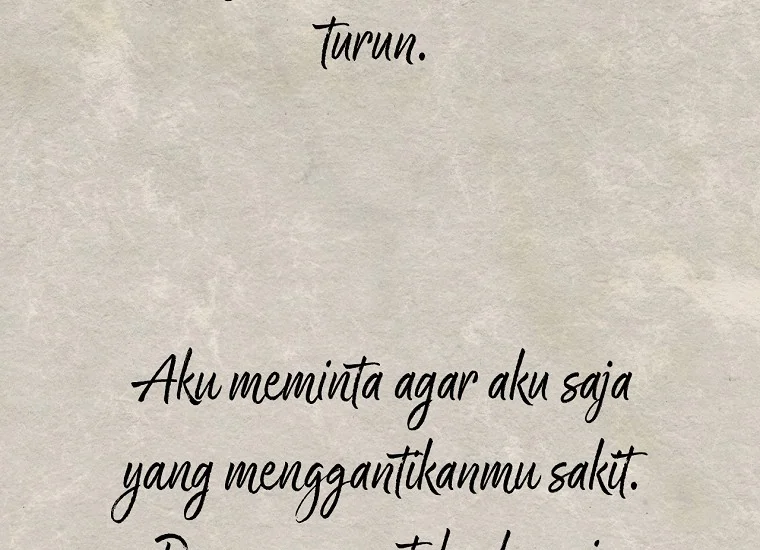 turun.
Aku meminta agar aku saja
yang menggantikanmu sakit.